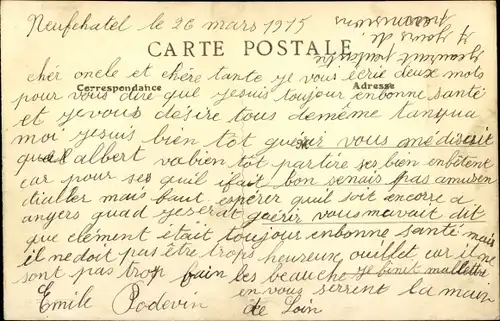 Neufchatel le 26 mars 1915
CARTE POSTALE
Correspondance
Adresse
chér oncle et chére tante je vous ecrie deux mots
pour vous dire que jesuis toujour enbonne santé
et jevous désire tous demême tanqua
moi jesuis bien tôt guérir vous médisait
que albert vabien tôt partire ses bien enbêtent
car pour ses quil ifait bon senais pas amusen
dialler mais faut espérer quil soit encorre a
angers quad jeserat guérir vous mavait dit
que clément itait toujour enbonne santé mais
il ne doit pas être trops heureux ouillet car il ne
sont pas trop fain les beauche je finit malettre
en vous serrent la main
Emile Podevin de Loin
4 jours de
permissions